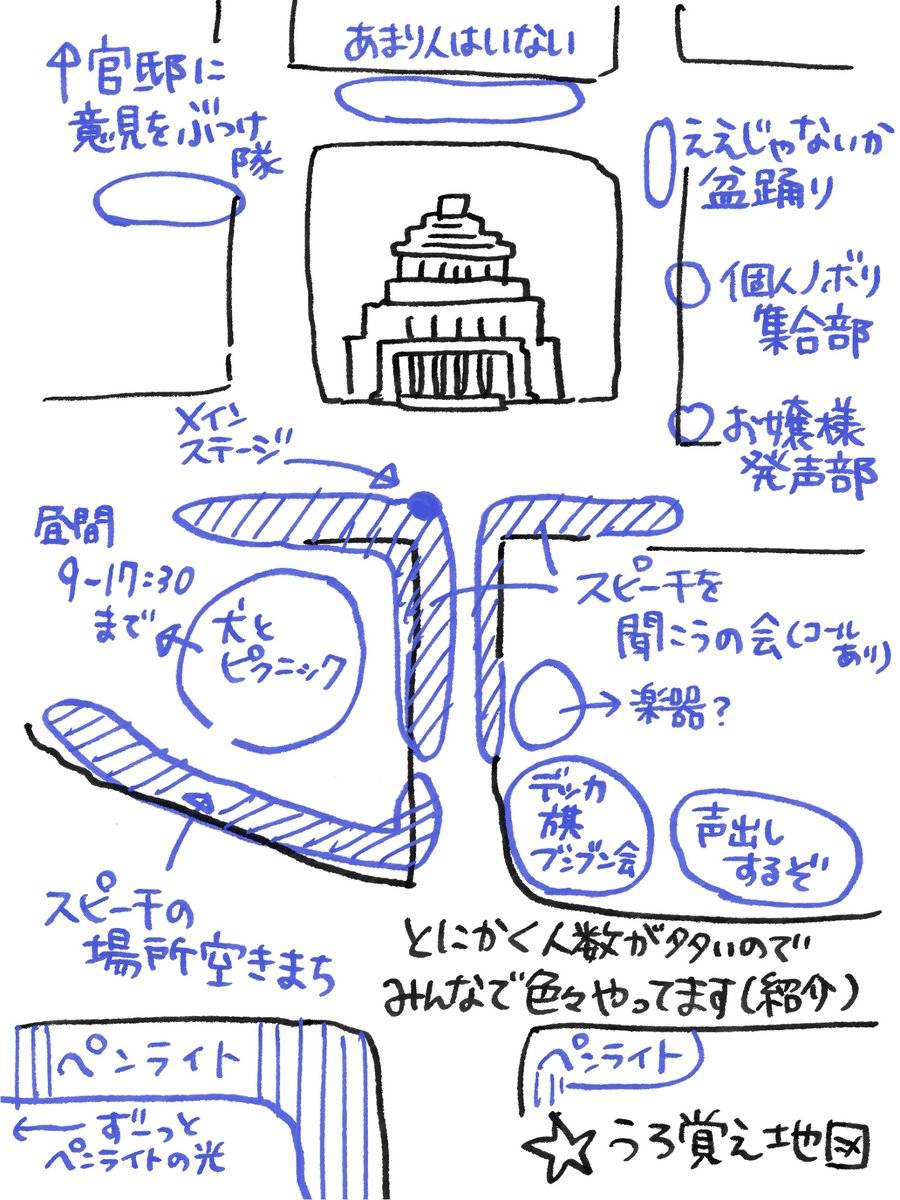 あまり人はいない
↑官邸に
意見をぶつけ
隊
ええじゃないか
盆踊り
個人ノボリ
集合部
お嬢様
発声部
メイン
ステージ
昼間
9-17:30
まで
犬と
ピクニック
スピーチを
聞こうの会(コール
あり)
楽器?
デッカ
旗
ブンブン会
声出し
するぞ
スピーチの
場所空きまち
とにかく人数が多いので
みんなで色々やってます(紹介)
ペンライト
ペンライト
←ずーっと
ペンライトの光
☆うろ覚え地図